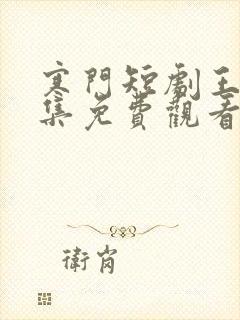 寒門短劇王
集免費觀看
衛肖